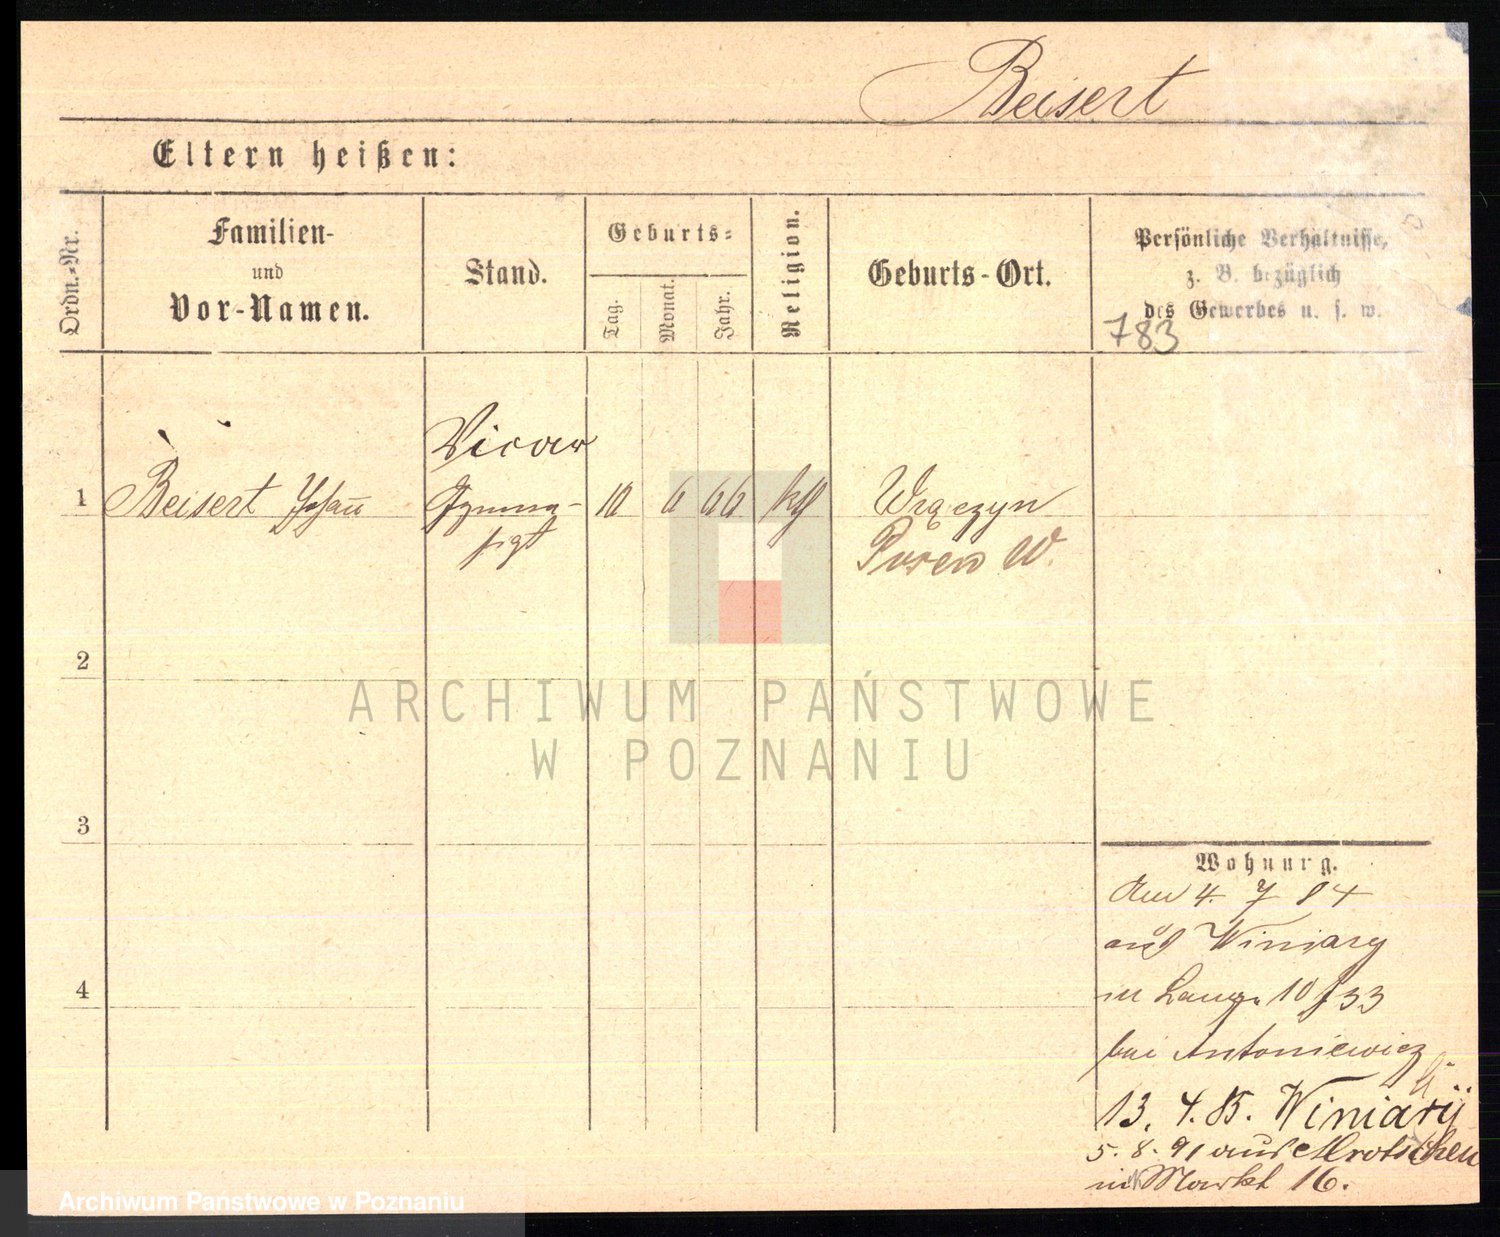 Beisert
Eltern heißen:
Ordn.-Nr.
Familien-
und
Vor-Namen.
Stand.
Geburts-
Tag.
Monat.
Jahr.
Religion.
Geburts-Ort.
Persönliche Verhältnisse,
z. B. bezüglich
des Gewerbes u. s. w.
783
Vicar
1 Beisert Johann Gymna- 10 6 66 kth Wrączyn
sist Posen W.
2
ARCHIWUM PAŃSTWOWE
W POZNANIU
3
Wohnung.
Am 4. 7 84
aus Winiary
in Lange 10
bei Antoniewicz
13. 4. 85. Winiary
5. 8. 91 aus Mrotschen
in Markt 16.
4
Archiwum Państwowe w Poznaniu